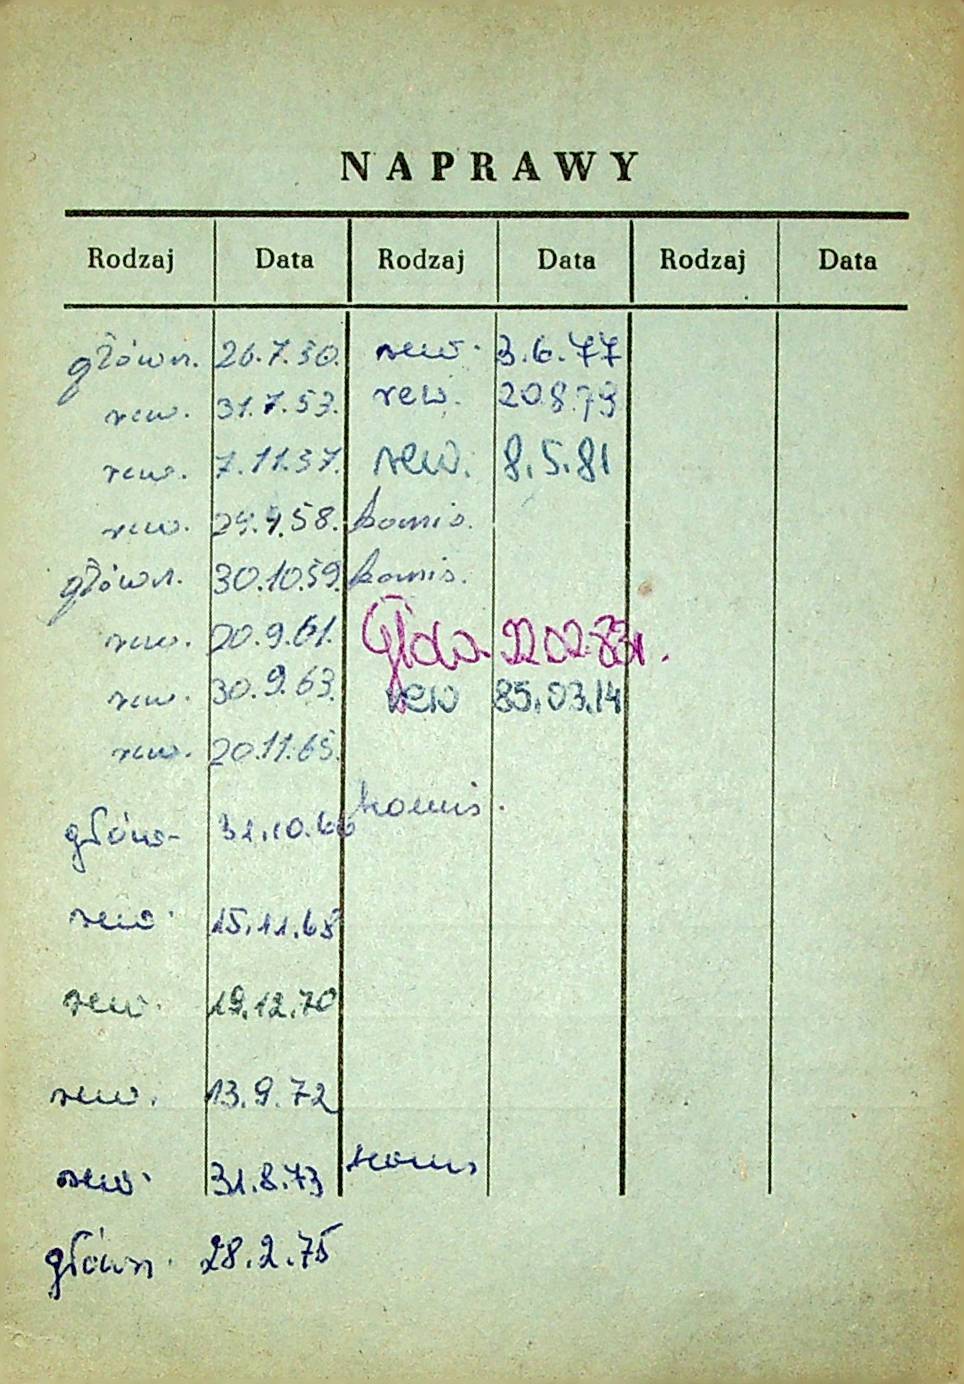 NAPRAWY
Rodzaj Data Rodzaj Data Rodzaj Data
główn. 26.7.50. rew. 3.6.77
rew. 31.7.53. rew. 20.8.79
rew. 7.11.57. rew. 8.5.81
rew. 29.9.58. komis.
główn. 30.10.59. komis.
rew. 20.9.61. 22.02.83
rew. 30.9.63. rew 85.03.14
rew. 20.11.65.
komis.
główn 31.10.66
rew. 15.11.68
rew. 19.12.70
rew. 13.9.72
rew. 31.8.73 komis
główn. 28.2.75